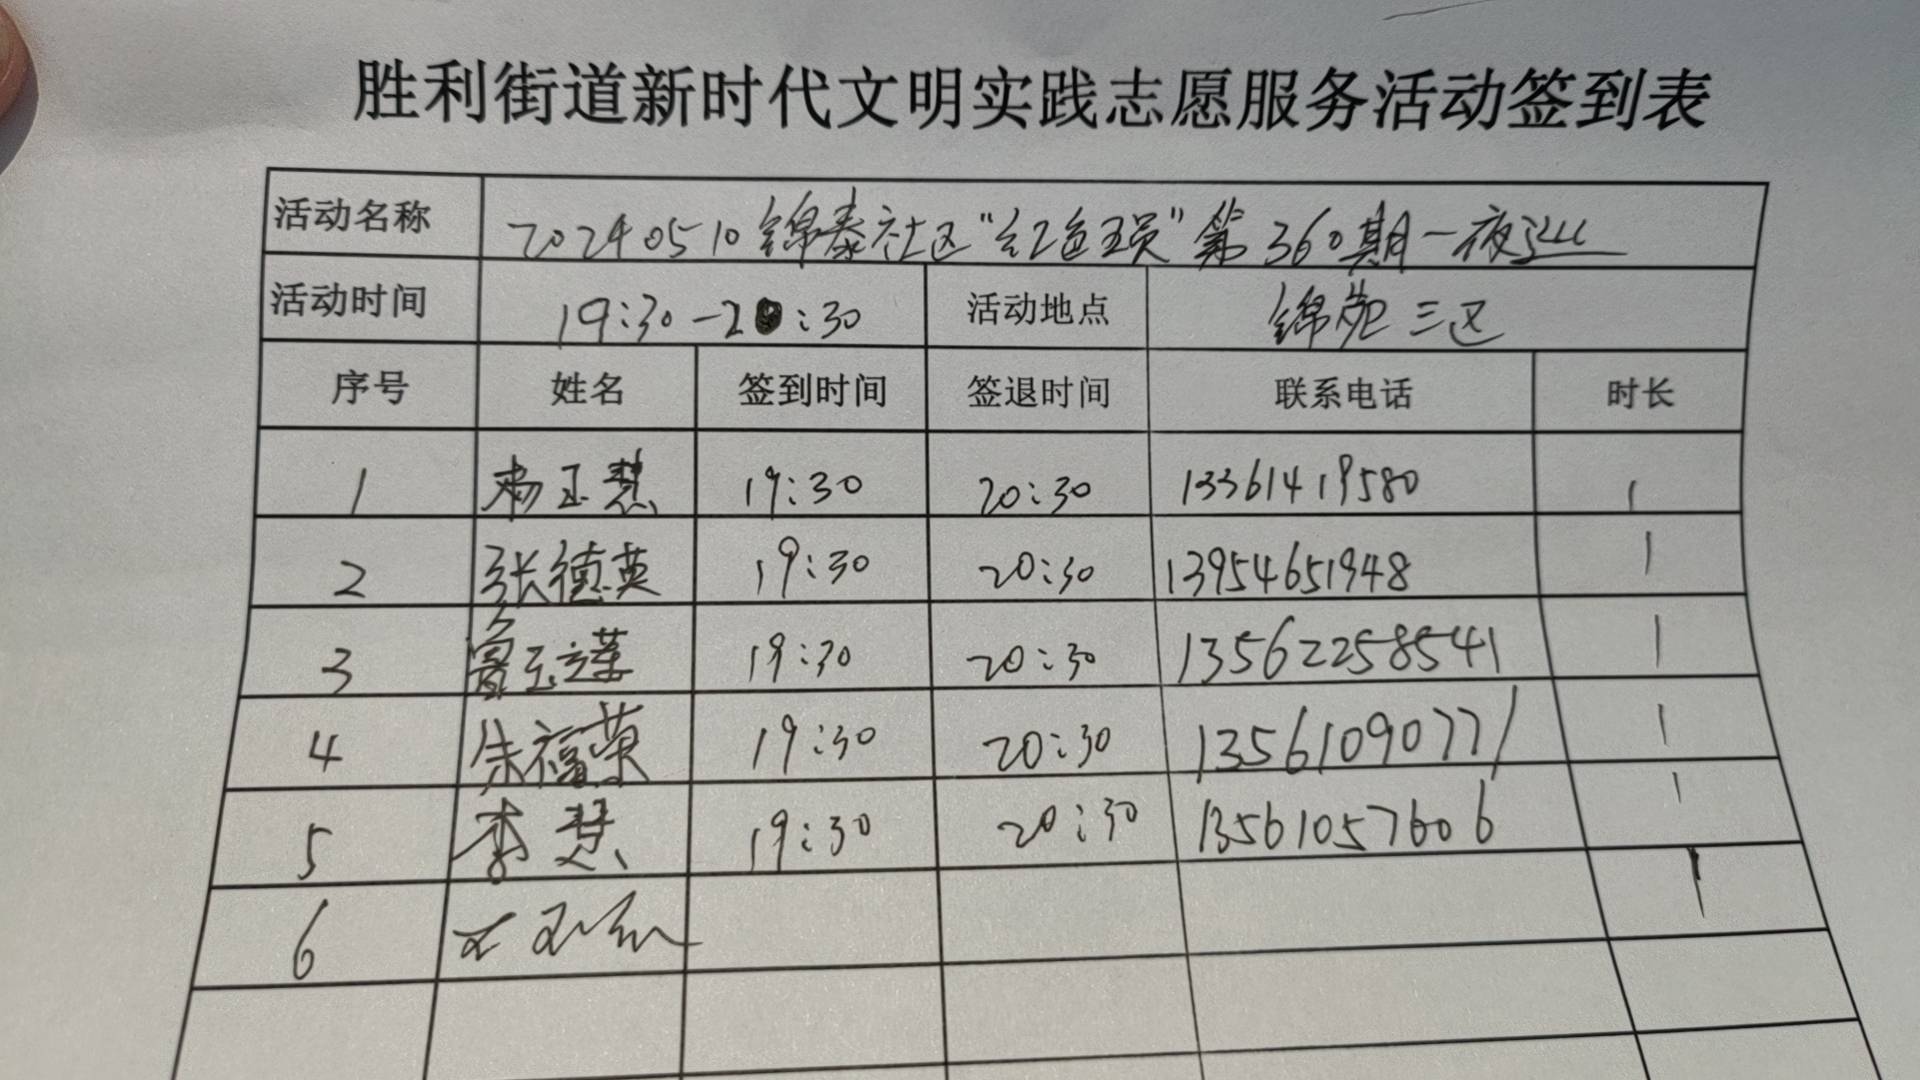 胜利街道新时代文明实践志愿服务活动签到表
活动名称 20240510锦泰社区“红色项”第360期一夜巡
活动时间 19:30-20:30 活动地点 锦苑三区
序号 姓名 签到时间 签退时间 联系电话 时长
1 杨玉慧 19:30 20:30 13361419580 1
2 张德英 19:30 20:30 13954651948 1
3 玉莲 19:30 20:30 13562258541 1
4 朱福荣 19:30 20:30 13561090771 1
5 李慧 19:30 20:30 13561057606 1
6 1